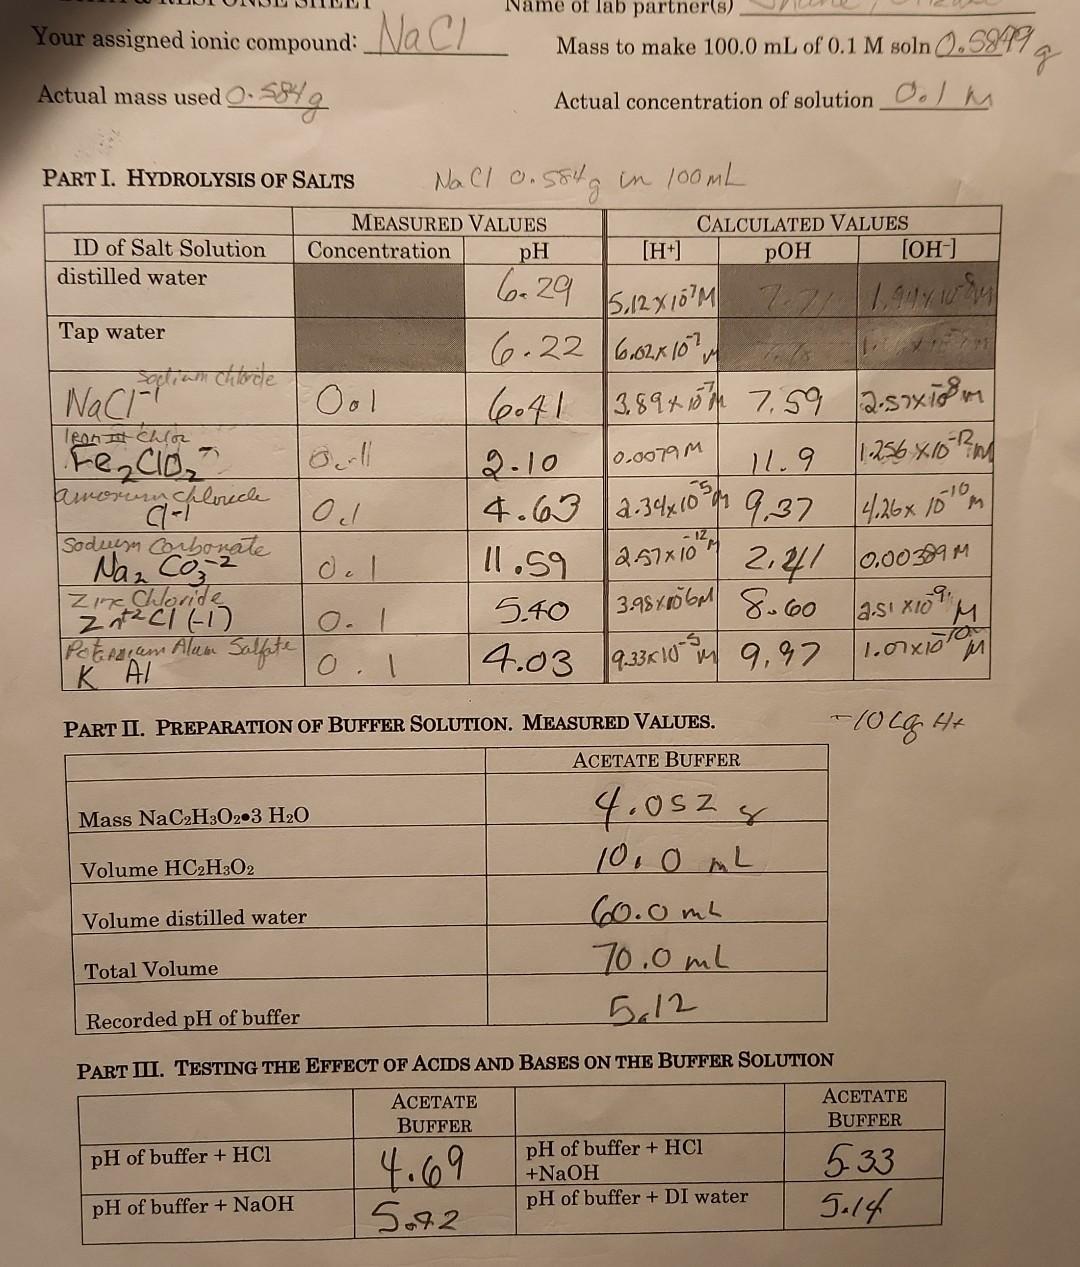 Name of lab partner(s)
Your assigned ionic compound: NaCl
Mass to make 100.0 mL of 0.1 M soln 0.5844 g
Actual mass used 0.584g
Actual concentration of solution 0.1 M
PART I. HYDROLYSIS OF SALTS
NaCl 0.584g in 100mL
MEASURED VALUES CALCULATED VALUES
ID of Salt Solution Concentration pH [H+] pOH [OH-]
distilled water 6.29 5.12 x 10-7 M 7.71
Tap water 6.22 6.02 x 10-7 M
Sodium chloride
NaCl-1 0.1 6.41 3.89 x 10-7 M 7.59 2.57x10-8 M
Fe2ClO2 2.10 0.0079 M 11.9 1.256 x10-12 M
chloride
Cl-1 0.1 4.63 2.34x10-5 M 9.37 4.26x 10-10 M
Sodium Carbonate
Na2 CO3-2 0.1 11.59 2.57x10-12 M 2.41 0.00389 M
Zinc Chloride
Zn+2Cl(-1) 0.1 5.40 3.98x10-6M 8.60 2.51 x10-9 M
Potassium Alum Sulfate
K Al 0.1 4.03 9.33x10-5 M 9.97 1.07x10-10 M
PART II. PREPARATION OF BUFFER SOLUTION. MEASURED VALUES.
-10Lg H+
ACETATE BUFFER
Mass NaC2H3O2•3 H2O 4.052 g
Volume HC2H3O2 10.0 mL
Volume distilled water 60.0 mL
Total Volume 70.0 mL
Recorded pH of buffer 5.12
PART III. TESTING THE EFFECT OF ACIDS AND BASES ON THE BUFFER SOLUTION
ACETATE BUFFER ACETATE BUFFER
pH of buffer + HCl 4.69 pH of buffer + HCl +NaOH 5.33
pH of buffer + NaOH pH of buffer + DI water 5.14